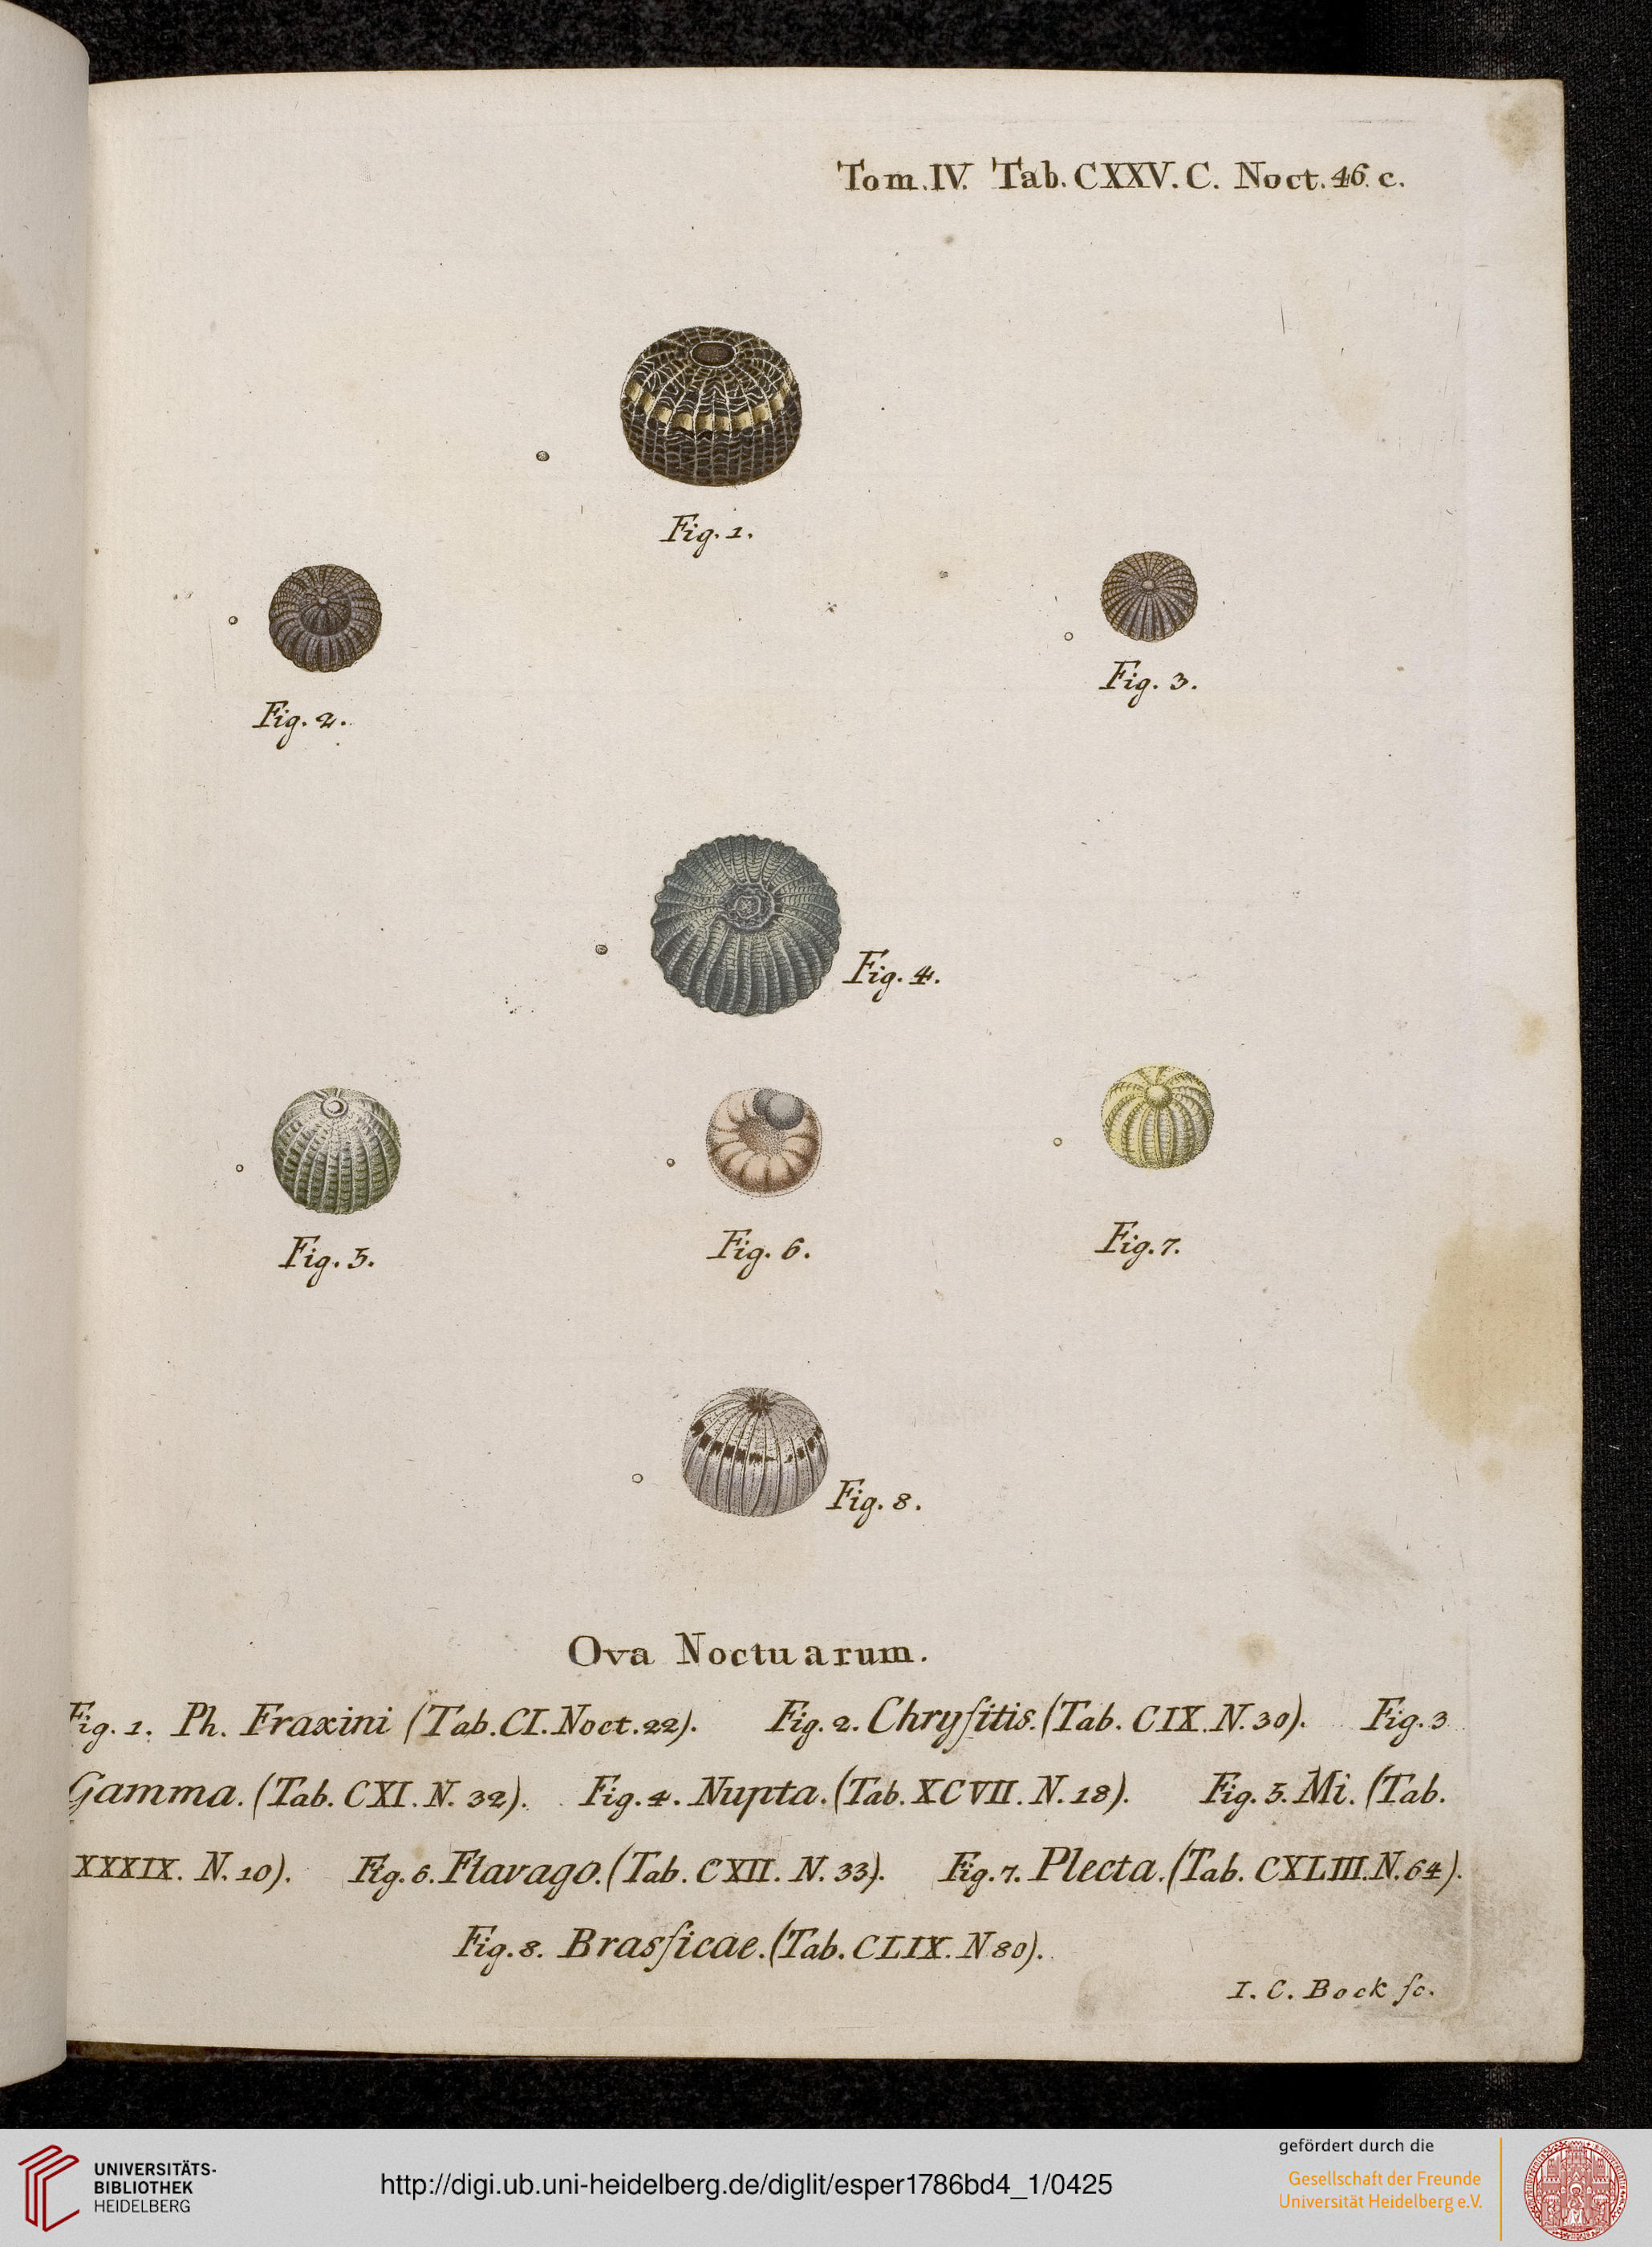 Tom.IV. Tab. CXXV. C. Noct. 46. c.
Fig. 1.
Fig. 2.
Fig. 3.
Fig. 4.
Fig. 5.
Fig. 6.
Fig. 7.
Fig. 8.
Ova Noctuarum.
Fig. 1. Ph. Fraxini (Tab. CI. Noct. 22). Fig. 2. Chryſitis. (Tab. CIX. N. 30). Fig. 3
Gamma. (Tab. CXI. N. 32). Fig. 4. Nupta. (Tab. XCVII. N. 18). Fig. 5. Mi. (Tab.
XXXIX. N. 10). Fig. 6. Flavago. (Tab. CXII. N. 33). Fig. 7. Plecta. (Tab. CXLIII. N. 64).
Fig. 8. Brasſicae. (Tab. CLIX. N 80).
I. C. Bock ſc.
UNIVERSITÄTS-
BIBLIOTHEK
HEIDELBERG
http://digi.ub.uni-heidelberg.de/diglit/esper1786bd4_1/0425
gefördert durch die
Gesellschaft der Freunde
Universität Heidelberg e.V.